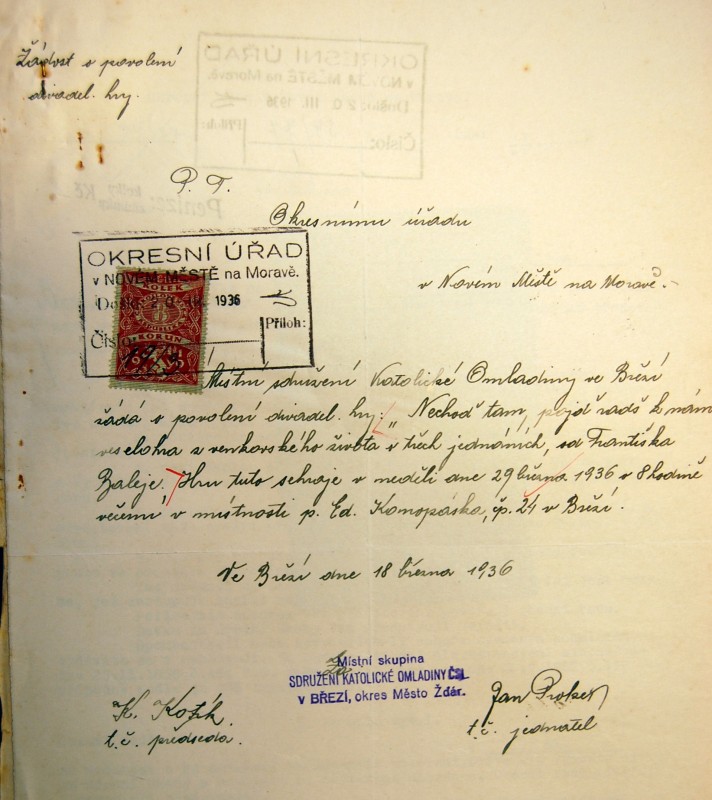 Žádost o povolení
divadel. hry.
P. T.
Okresnímu úřadu
v Novém Městě na Moravě.
OKRESNÍ ÚŘAD
v NOVÉM MĚSTĚ na Moravě.
Došlo: 2 0. III. 1936
Číslo:
Příloh:
KOLEK
KORUN
Místní sdružení Katolické Omladiny ve Březí
žádá o povolení divadel. hry: „Nechoď tam, pojď radš k nám
veselohra z venkovského života v třech jednáních, od Františka
Baleje. Hru tuto sehraje v neděli dne 29 března 1936 v 8 hodině
večerní v místnosti p. Ed. Konopáska, čp. 24 v Březí.
Ve Březí dne 18 března 1936
Za
Místní skupina
SDRUŽENÍ KATOLICKÉ OMLADINY ČSL.
v BŘEZÍ, okres Město Žďár.
K. Kožík.
t.č. předseda.
Jan
t.č. jednatel